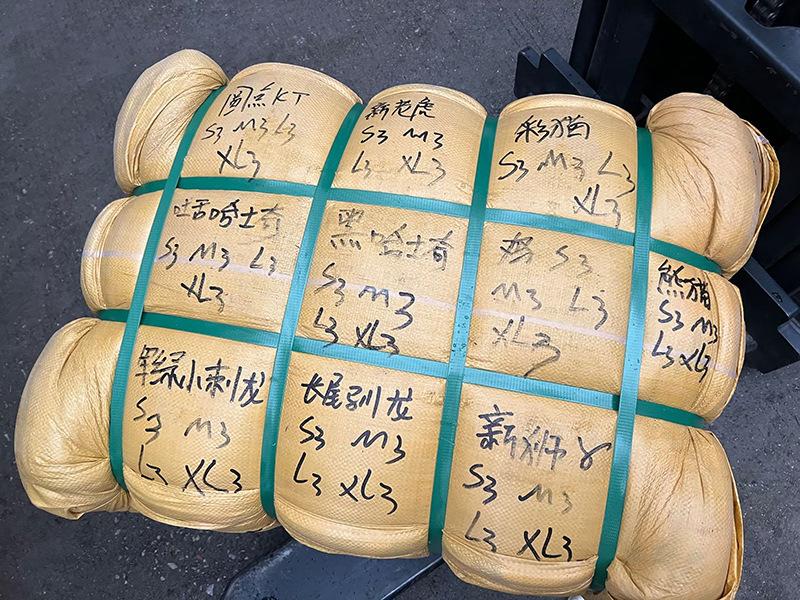 圆点KT
S3 M3 L3
XL3
新老虎
S3 M3
L3 XL3
彩猫
S3 M3 L3
XL3
哈士奇
S3 M3 L3
XL3
黑哈士奇
S3 M3
L3 XL3
S3
M3 L3
XL3
熊猫
S3 M3
L3 XL3
小刺龙
S3 M3
L3 XL3
长尾 龙
S3 M3
L3 XL3
新狮
S3 M3
L3 XL3